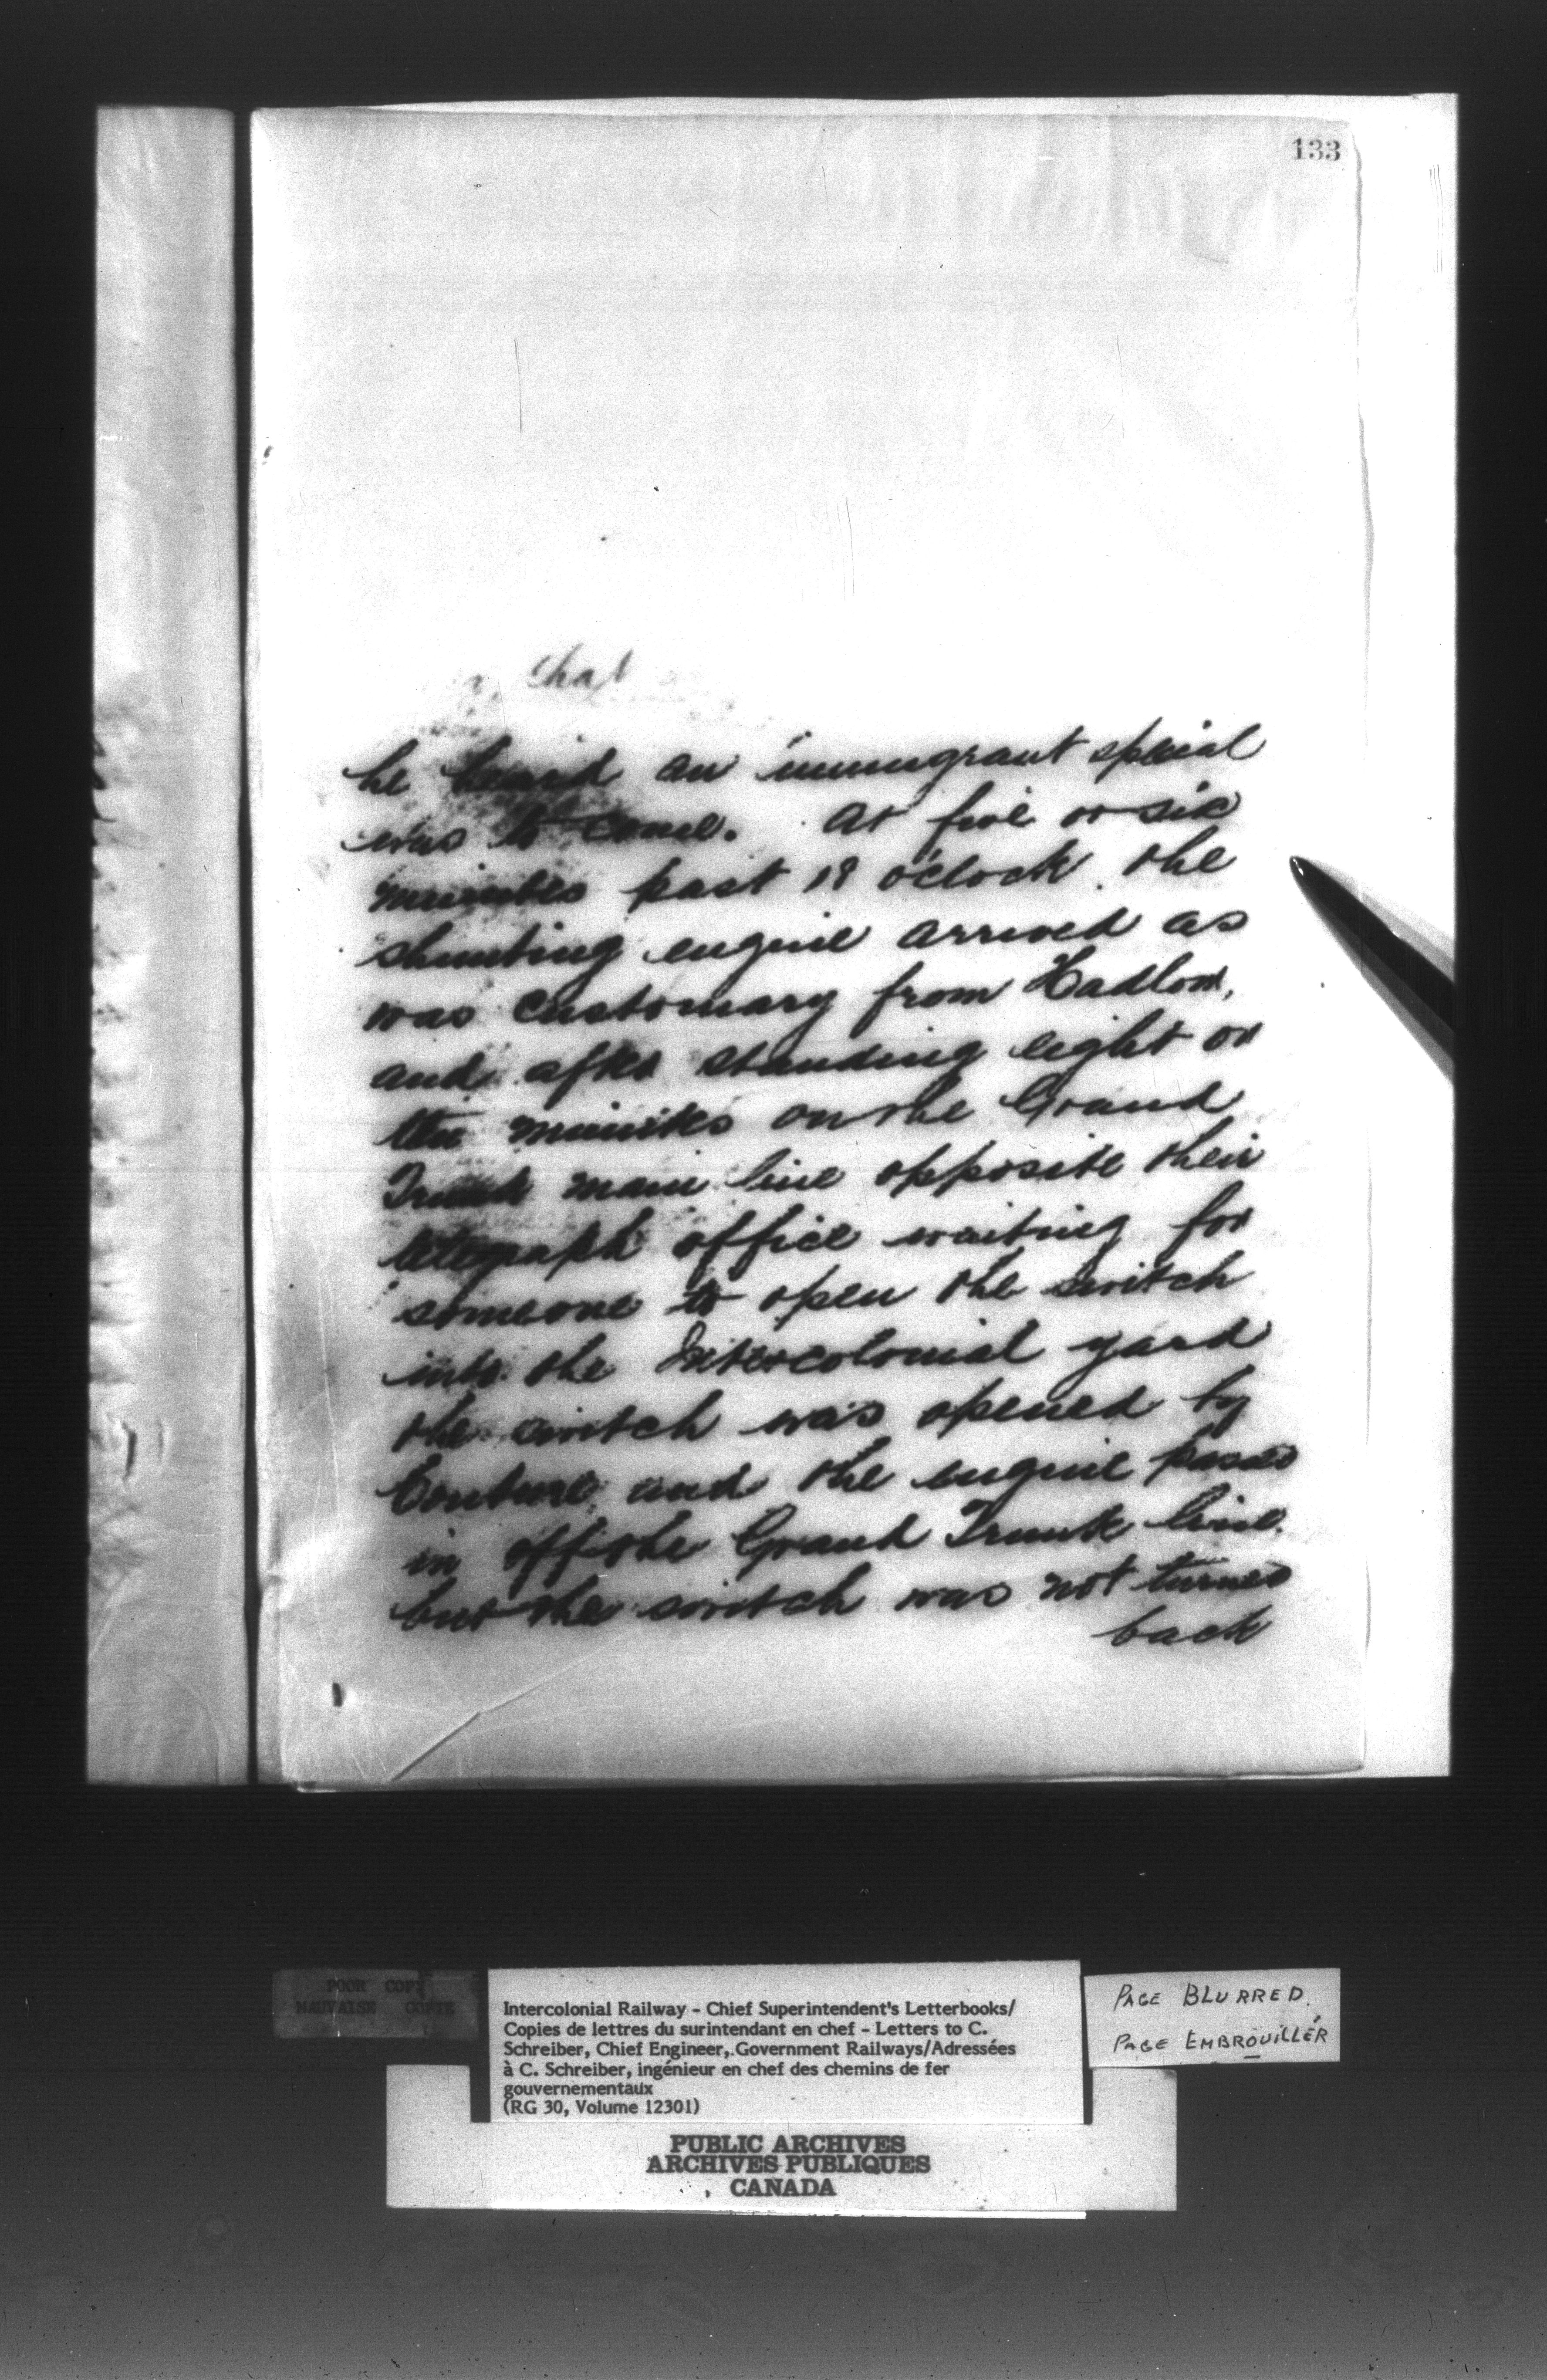 133
that
he heard an immigrant special
was to come. At five or six
minutes past 18 o'clock the
shunting engine arrived as
was customary from Hadlow,
and after standing eight or
ten minutes on the Grand
Trunk main line opposite their
telegraph office waiting for
someone to open the switch
into the Intercolonial yard
the switch was opened by
Couture and the engine passed
in off the Grand Trunk line.
but the switch was not turned
back
POOR COPY
MAUVAISE COPIE
Intercolonial Railway - Chief Superintendent's Letterbooks/
Copies de lettres du surintendant en chef - Letters to C.
Schreiber, Chief Engineer, Government Railways/Adressées
à C. Schreiber, ingénieur en chef des chemins de fer
gouvernementaux
(RG 30, Volume 12301)
PAGE BLURRED.
PAGE EMBROUILLÉR
PUBLIC ARCHIVES
ARCHIVES PUBLIQUES
CANADA